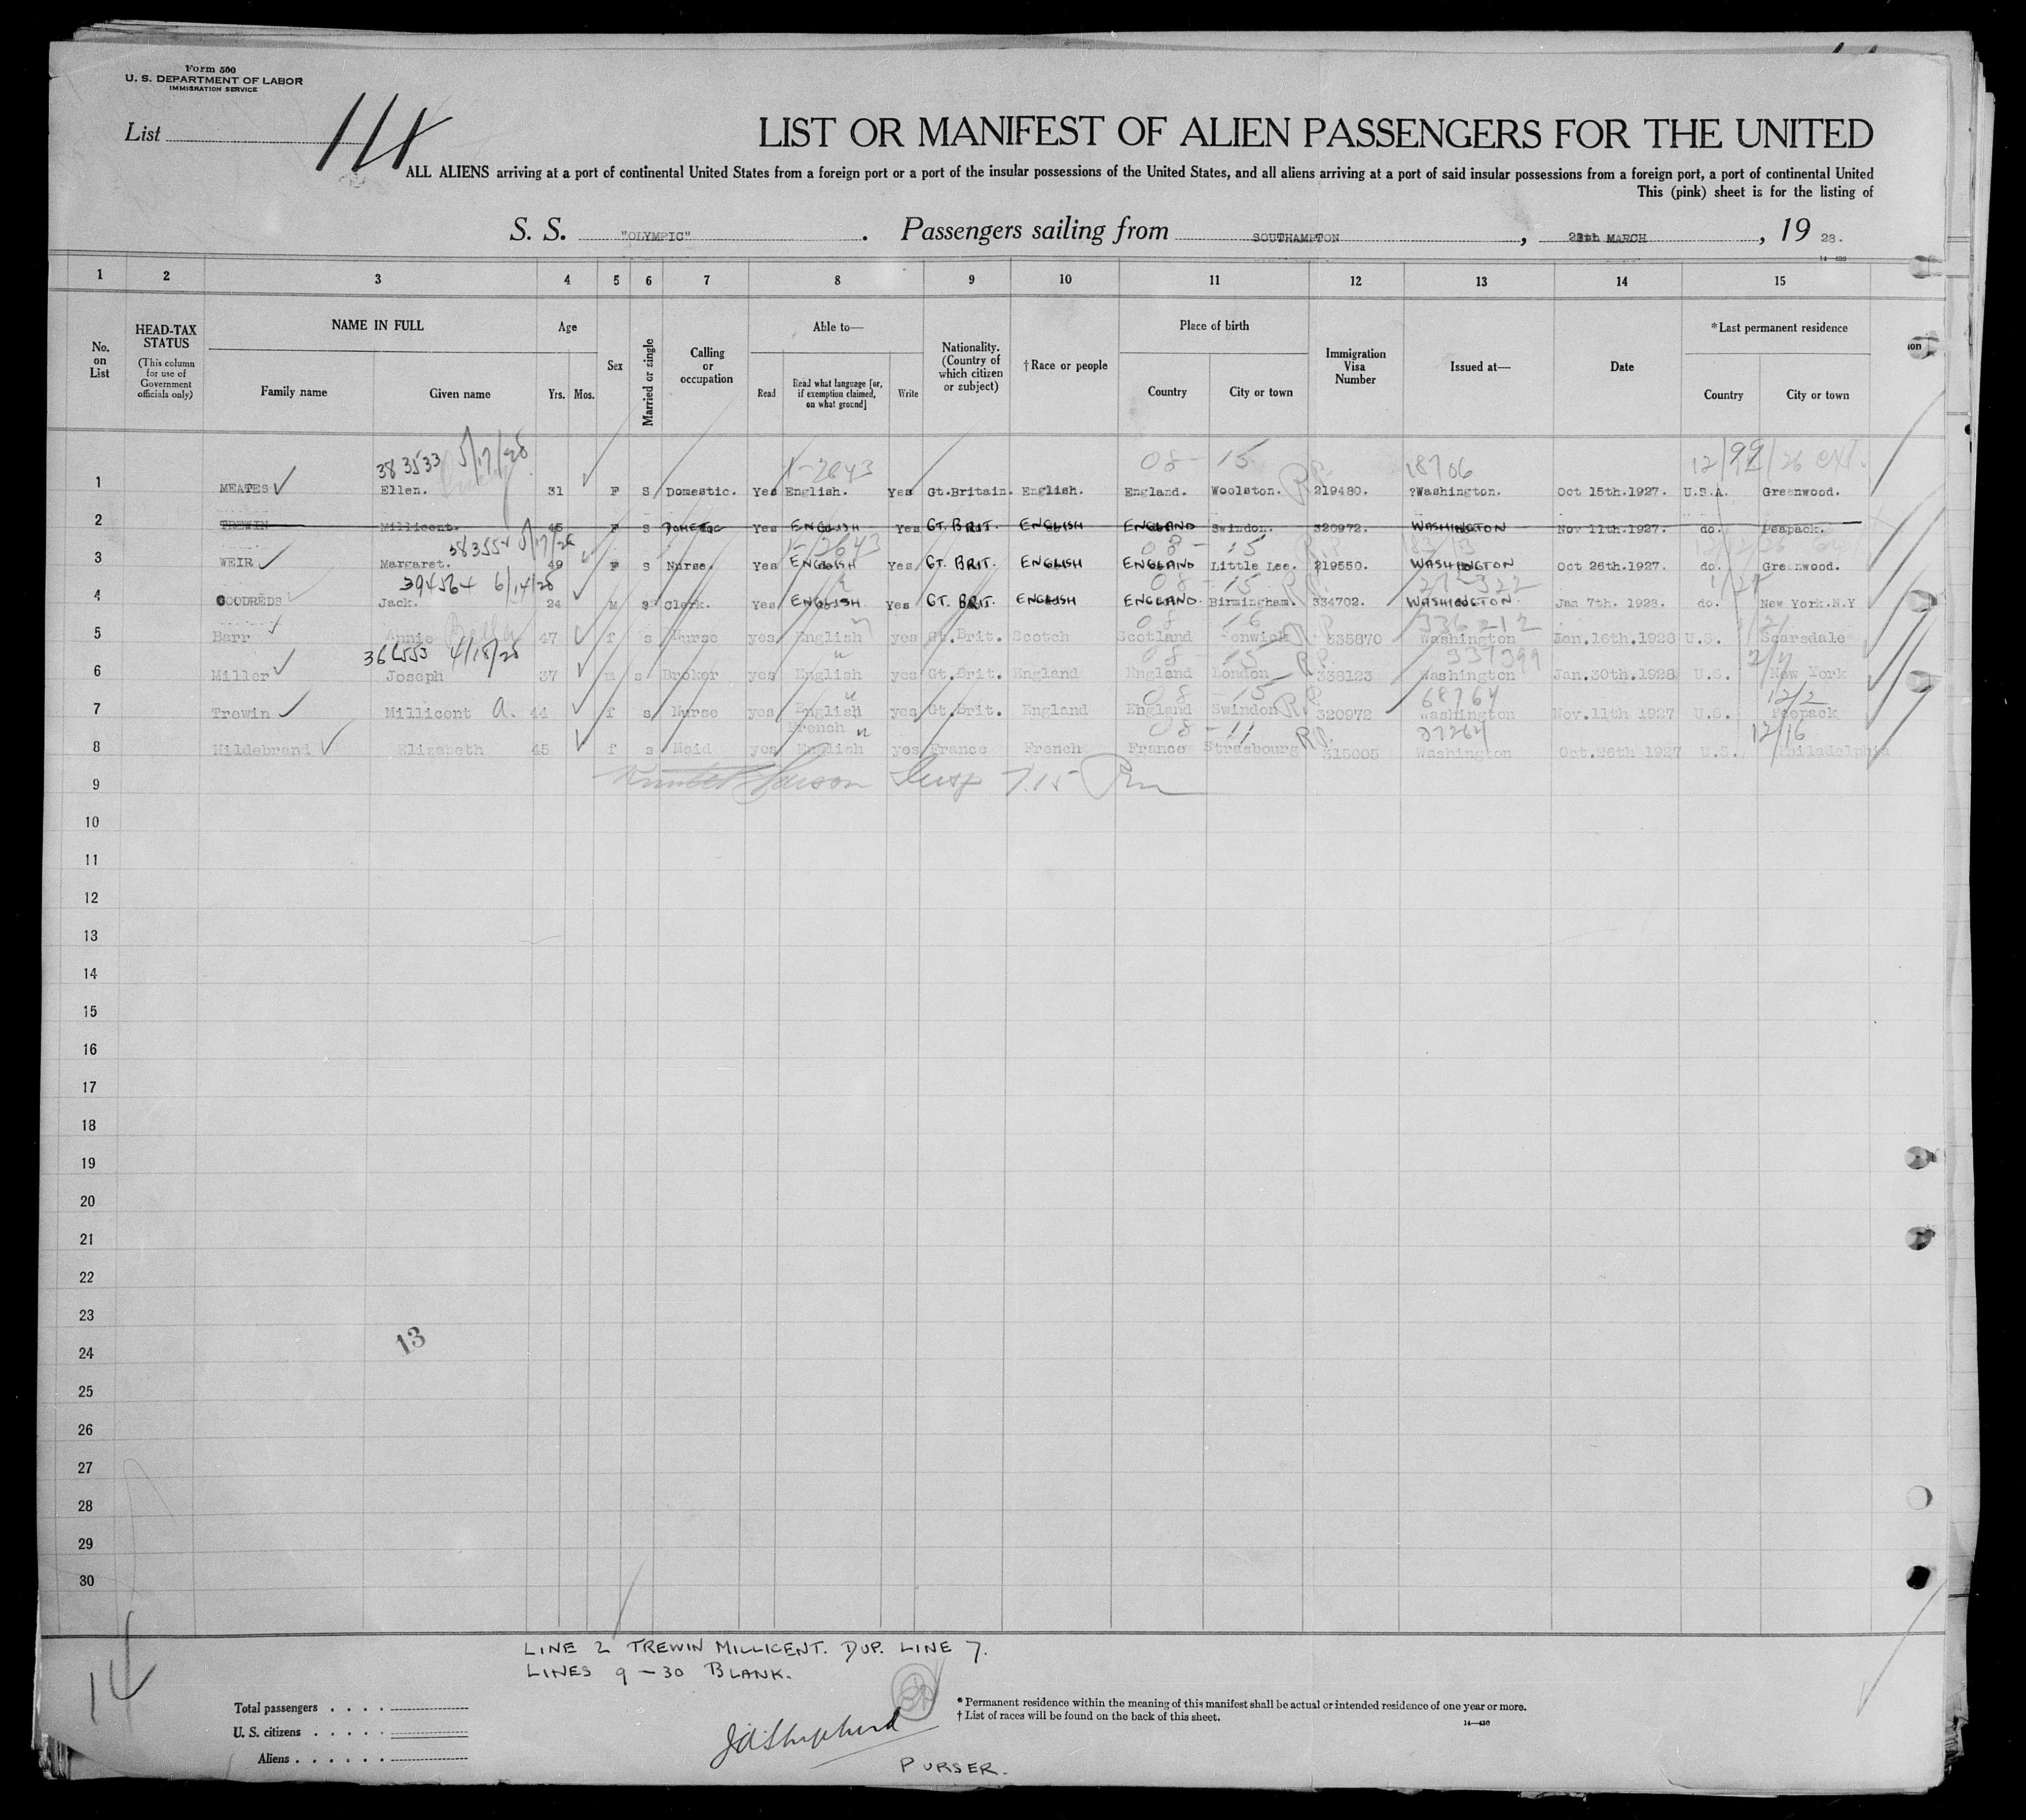 Form 500
U. S. DEPARTMENT OF LABOR
IMMIGRATION SERVICE
List
LIST OR MANIFEST OF ALIEN PASSENGERS FOR THE UNITED
ALL ALIENS arriving at a port of continental United States from a foreign port or a port of the insular possessions of the United States, and all aliens arriving at a port of said insular possessions from a foreign port, a port of continental United
This (pink) sheet is for the listing of
S. S. "OLYMPIC". Passengers sailing from SOUTHAMPTON, MARCH, 19 28.
14-430
1 2 3 4 5 6 7 8 9 10 11 12 13 14 15
No. on List
HEAD-TAX STATUS
(This column for use of Government officials only)
NAME IN FULL
Family name Given name
Age
Yrs. Mos.
Sex
Married or single
Calling or occupation
Able to—
Read Read what language [or, if exemption claimed, on what ground] Write
Nationality. (Country of which citizen or subject)
† Race or people
Place of birth
Country City or town
Immigration Visa Number
Issued at—
Date
* Last permanent residence
Country City or town
383533 5/17/28 1-2643 08- 15 18706
1 MEATES Ellen. 31 F S Domestic. Yes English. Yes Gt.Britain. English. England. Woolston. 219480. ?Washington. Oct 15th.1927. U.S.A. Greenwood.
2 TREWIN Millicent. 45 F S Yes ENGLISH Yes GT. BRIT. ENGLISH ENGLAND Swindon. 320972. WASHINGTON Nov 11th.1927. do. Peapack.
5/17/28 1-2643 08- 15
3 WEIR Margaret. 49 F S Nurse. Yes ENGLISH Yes GT. BRIT. ENGLISH ENGLAND Little Lee. 219550. WASHINGTON Oct 26th.1927. do. Greenwood.
6/14/28 08- 15
4 GOODREDS Jack. 24 M S Clerk. Yes ENGLISH Yes GT. BRIT. ENGLISH ENGLAND. Birmingham. 334702. WASHINGTON. Jan 7th. 1928. do. New York.N.Y
08 16 336212
5 Barr Annie Bella 47 f s Nurse yes English yes Gt.Brit. Scotch Scotland Fenwick 335870 Washington Jan.16th.1928 U.S. Scarsdale
4/18/28 08- 15 R.P. 337399
6 Miller Joseph 37 m s Broker yes English yes Gt.Brit. England England London 338123 Washington Jan.30th.1928 U.S. New York
08 15 68764 12/2
7 Trewin Millicent A. 44 f s Nurse yes English yes Gt.Brit. England England Swindon 320972 Washington Nov.11th 1927 U.S. Peapack
French 08-11 R.P. 12/16
8 Hildebrand Elizabeth 45 f s Maid yes English yes France French France Strasbourg 315005 Washington Oct.26th 1927 U.S. Philadelphia
9
10
11
12
13
14
15
16
17
18
19
20
21
22
23
13
24
25
26
27
28
29
30
LINE 2 TREWIN MILLICENT. DUP. LINE 7.
LINES 9 – 30 BLANK.
14
Total passengers . . . .
U. S. citizens . . . . .
Aliens . . . . . .
* Permanent residence within the meaning of this manifest shall be actual or intended residence of one year or more.
† List of races will be found on the back of this sheet.
14-430
PURSER.